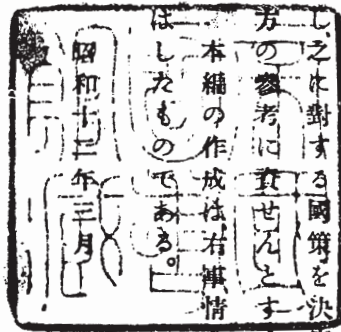 し之に對する國策を決
方の參考に資せんとす
本編の作成は右事情
はしたものである。
昭和十二年三月